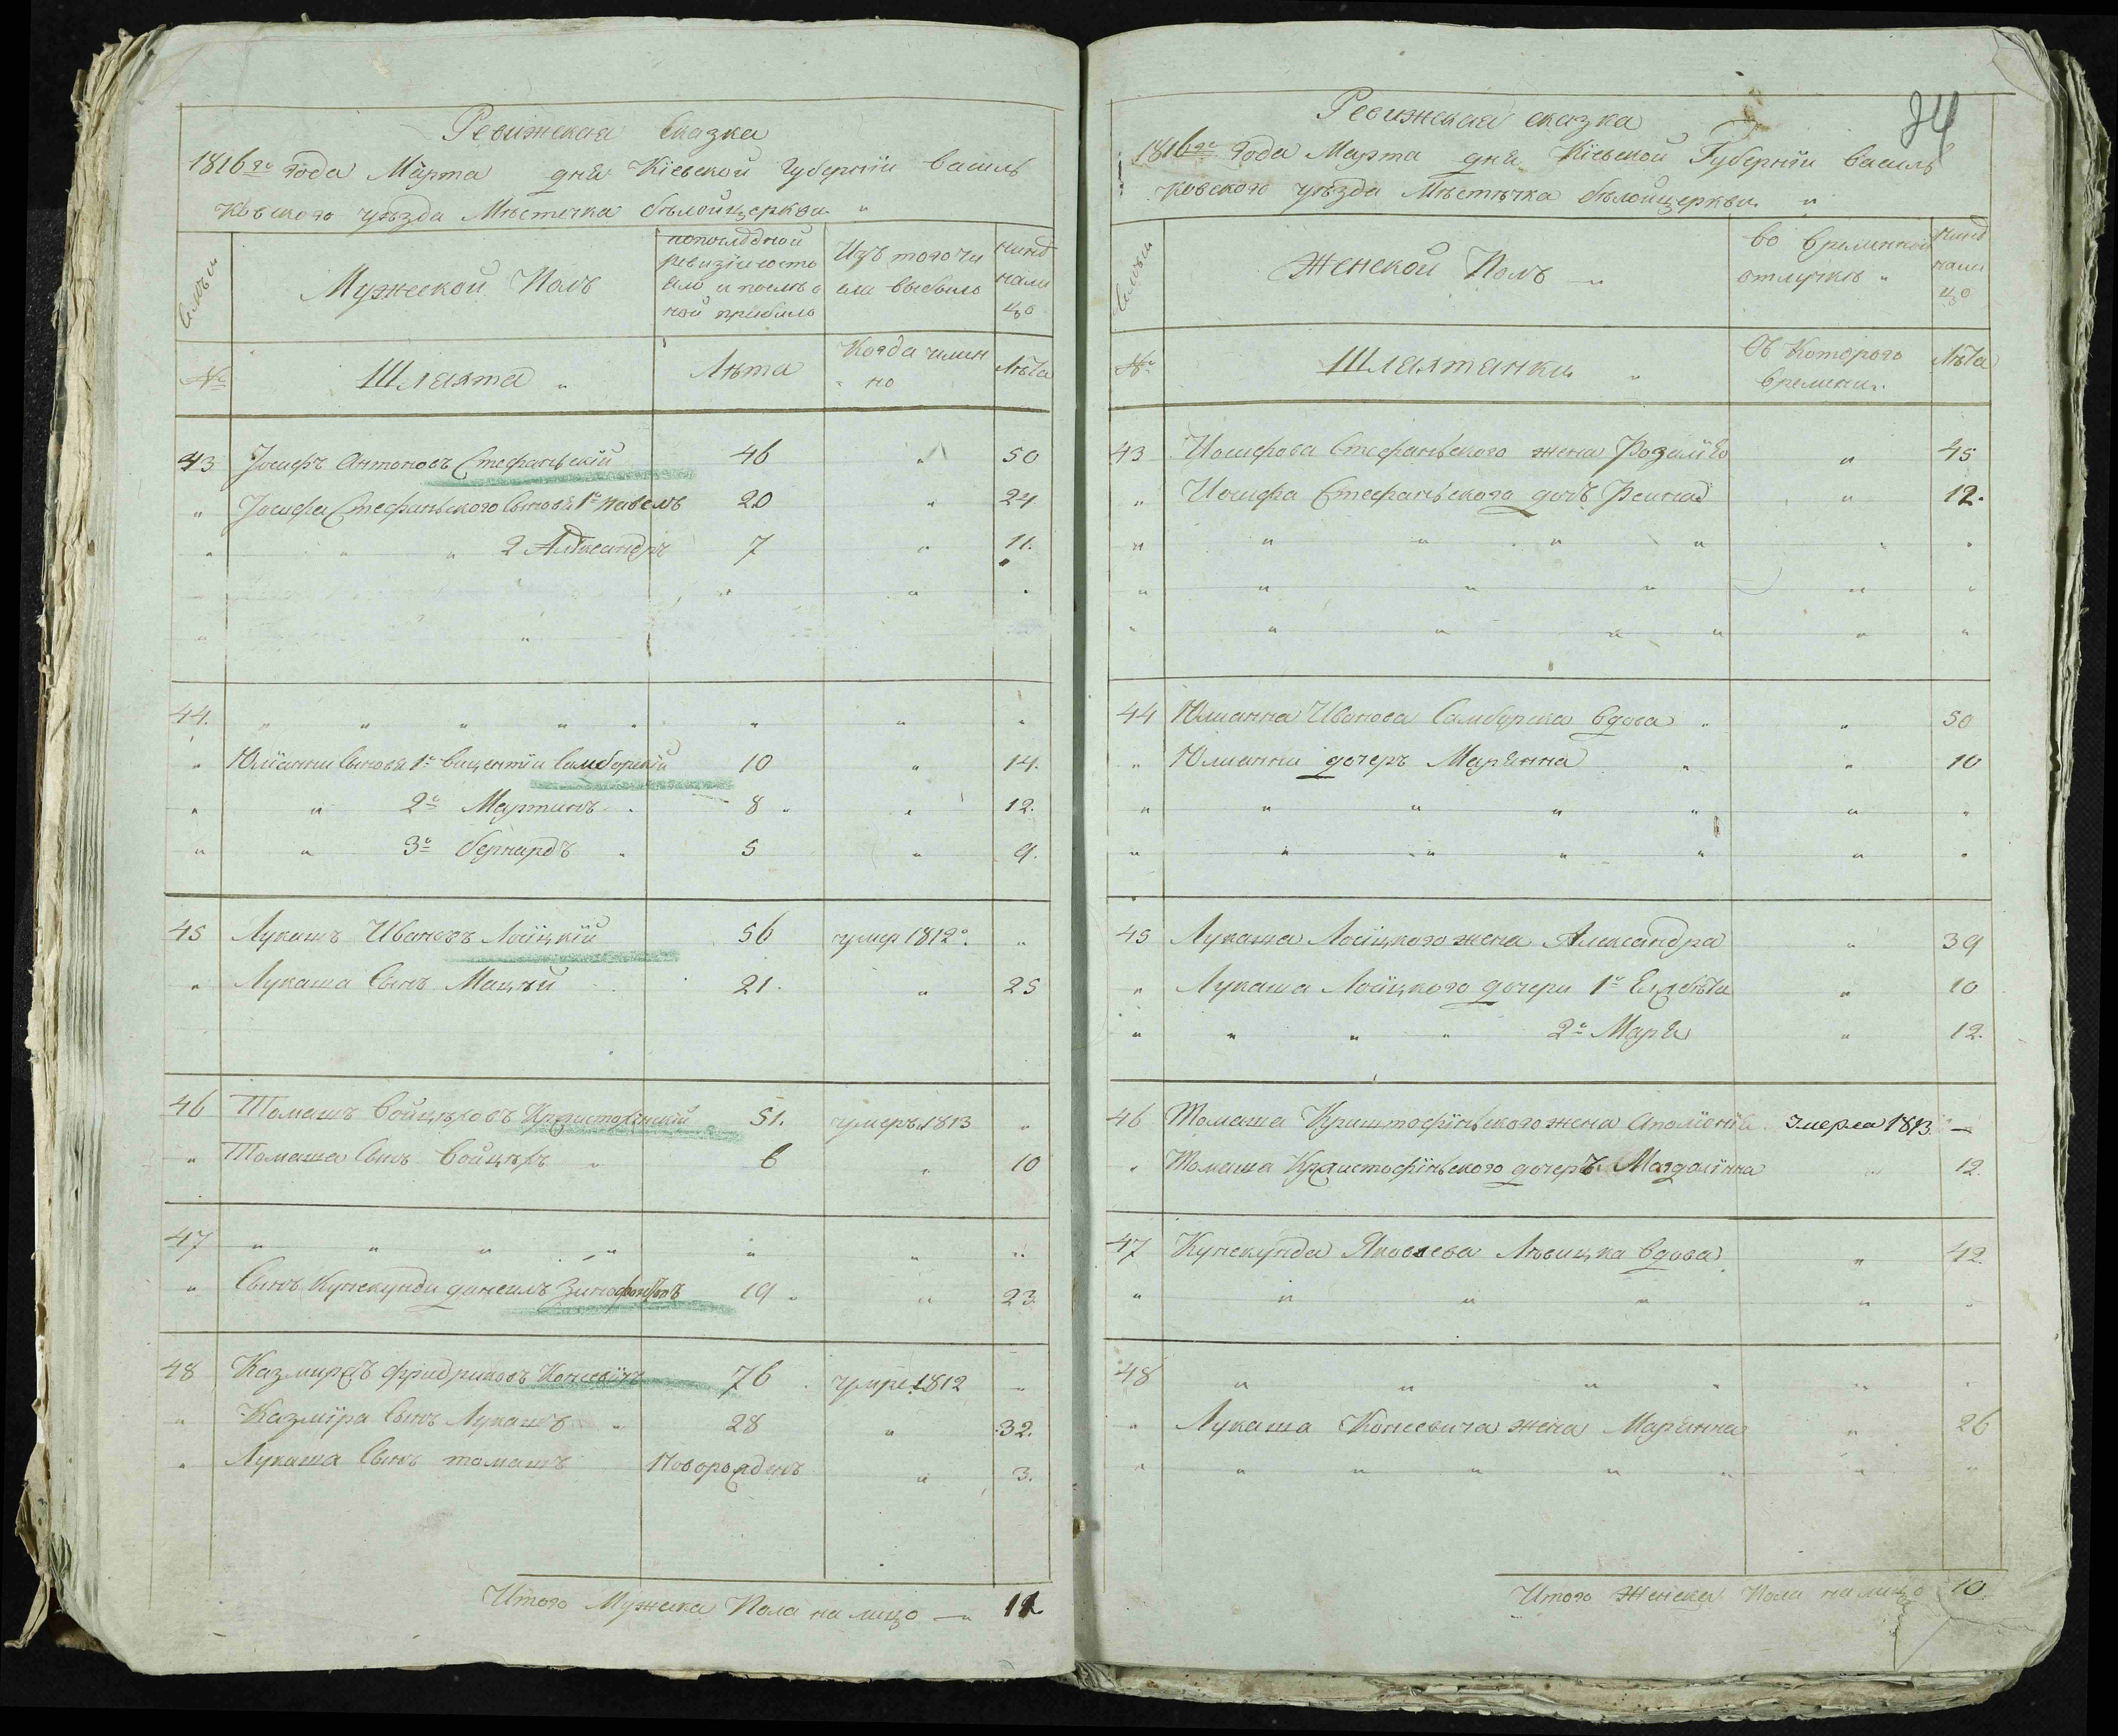 Ревижская сказка
1816го года Марта дня Кіевской Губерніи Василь
ковского уѣзда Мѣстечка бѣлойцеркви "
Семьи
Мужеской Полъ
попослѣдной
ревизіи состо
яло и послѣ о
ной прибыло
Изъ того чи
сла выбыло
нинѣ
нали
цо
№
Шляхта "
Лѣта
Когда имен
но
Лѣта
43 Іосифъ Антоновъ Стефаньскій 46 " 50
" Іосифа Стефаньского Сыновя 1й павелъ 20 " 24
" " " 2 Александръ 7 " 11.
44. " " " " " " " "
" Юліанни Сыновя 1й Вицентіи Самборскій 10 " 14.
" " 2й Мартинъ 8 " 12.
" " 3й бернардъ 5 " 9.
45 Лукашъ Ивановъ Лоііцкій 56 умер 1812о. "
" Лукаша Сынъ Мацѣй 21. " 25
46 Томашъ Войцѣховъ 51. умеръ 1813 "
" Томаша Сынъ Войцѣхъ " 6 " 10
47 " " " " " " "
" Сынъ Кунекунди данеилъ 19 " 23
48 Казмиръ фридриковъ 76 умре 1812 "
" Казміра Сынъ Лукашъ " 28 " 32.
" Лукаша Сынъ томашъ Новорожденъ " 3.
Итого Мужеска Пола на лицо — 11
34
Ревижская сказка
1816го Года Марта дня Кіевской Губерніи Василь
ковского уѣзда Мѣстѣчка бѣлойцеркви "
Семьи
Женской Полъ "
Во временной
отлучкѣ "
нинѣ
нали
цо
№
Шляхтянки "
Съ Которого
времени.
Лѣта
43 Иосифова Стефаньского жена Розалія " 45
" Иосифа Стефаньского дочъ " 12.
" " " " " " "
" " " " " "
" " " " " " "
44 Юлианна Иванова Самборска вдова " " 50
" Юлианни дочеръ Марянна " " 10
" " " " " " "
" " " " " " "
45 Лукаша Лоііцкого жена Александра " 39
" Лукаша Лоііцкого дочери 1я " 10
" " " " 2я Маря " 12.
46 Томаша Криштофіньского жена Аполіонія Умерла 1813. —
" Томаша Христофіньского дочеръ Магдалінна " 12.
47 Кунекунда Яковлева вдова " 42.
" " " " " "
48 " " " " " "
" Лукаша Консевича жена Марянна " 26
" " " " " " " "
Итого Женска Пола налицо 10